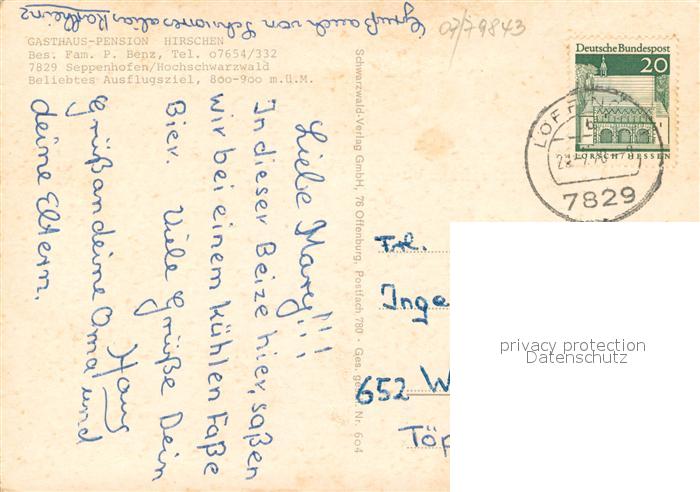 Gruß auch von
07/79843
GASTHAUS-PENSION HIRSCHEN
Bes. Fam. P. Benz, Tel. 07654/332
7829 Seppenhofen/Hochschwarzwald
Beliebtes Ausflugsziel, 800-900 m.ü.M.
Liebe Mary!!!
In dieser Beize hier, saßen
wir bei einem kühlen Faße
Bier. Viele Grüße Dein
Hans
Grüß an deine Oma und
deine Eltern.
Schwarzwald-Verlag GmbH, 76 Offenburg, Postfach 780 · Ges. gesch. Nr. 604
Deutsche Bundespost
20
LORSCH/HESSEN
b
7829
Frl.
Inge
652 W
Töp
privacy protection
Datenschutz